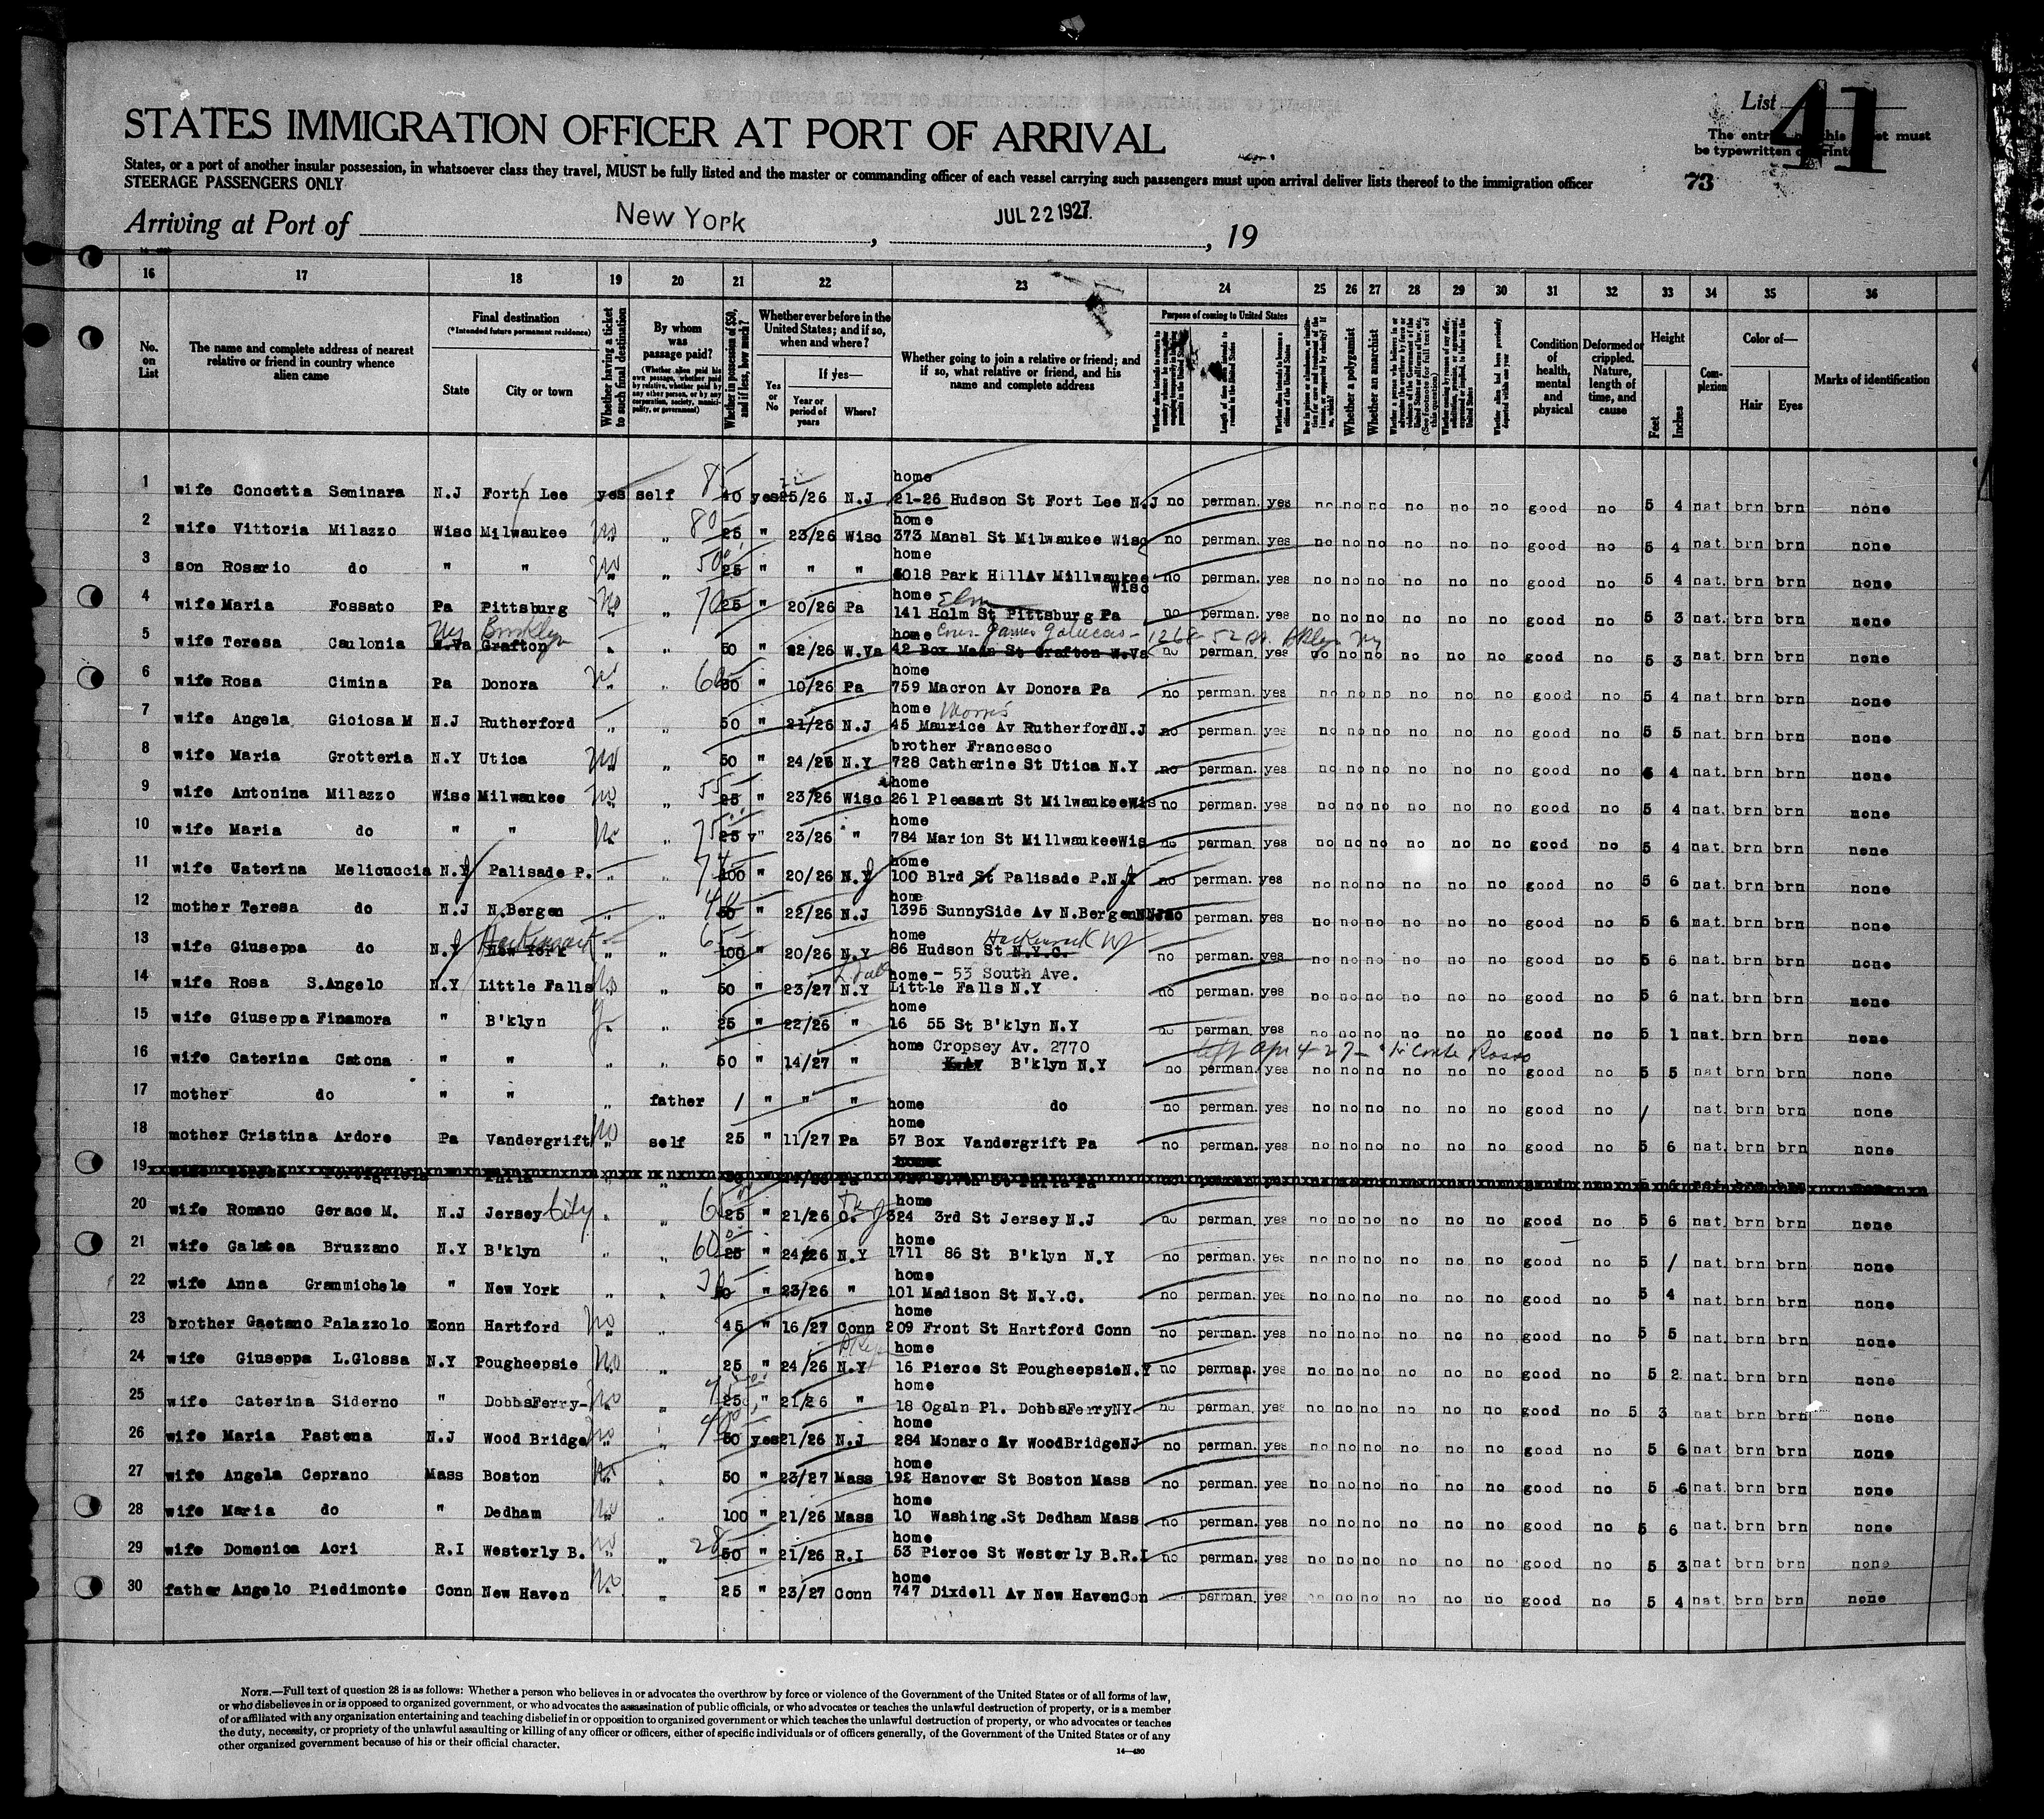 List 41
The entries on this sheet must
be typewritten or printed
STATES IMMIGRATION OFFICER AT PORT OF ARRIVAL
States, or a port of another insular possession, in whatsoever class they travel, MUST be fully listed and the master or commanding officer of each vessel carrying such passengers must upon arrival deliver lists thereof to the immigration officer
STEERAGE PASSENGERS ONLY
73
Arriving at Port of New York, JUL 22 1927, 19
16 17 18 19 20 21 22 23 24 25 26 27 28 29 30 31 32 33 34 35 36
No. on List
The name and complete address of nearest relative or friend in country whence alien came
Final destination
(*Intended future permanent residence)
State
City or town
Whether having a ticket to such final destination
By whom was passage paid?
(Whether alien paid his own passage, whether paid by relative, whether paid by any other person, or by any corporation, society, municipality, or government)
Whether in possession of $50, and if less, how much?
Whether ever before in the United States; and if so, when and where?
Yes or No
If yes—
Year or period of years
Where?
Whether going to join a relative or friend; and if so, what relative or friend, and his name and complete address
Purpose of coming to United States
Length of time alien intends to remain in the United States
Whether alien intends to become a citizen of the United States
Whether a polygamist
Whether an anarchist
Condition of health, mental and physical
Deformed or crippled. Nature, length of time, and cause
Height
Feet
Inches
Complexion
Color of—
Hair
Eyes
Marks of identification
1 wife Concetta Seminara N.J Forth Lee yes self 40 yes 25/26 N.J home 21-26 Hudson St Fort Lee N.J no perman. yes no no no no no no good no 5 4 nat brn brn none
2 wife Vittoria Milazzo Wisc Milwaukee No " 80 25 " 23/26 Wisc home 373 Manel St Milwaukee Wisc no perman. yes no no no no no no good no 5 4 nat. brn brn none
3 son Rosario do " " No " 50 25 " " " home 5018 Park HillAv Millwaukee Wisc no perman. yes no no no no no no good no 5 4 nat. brn brn none
4 wife Maria Fossato Pa Pittsburg No " 70 25 " 20/26 Pa home Elm 141 Holm St Pittsburg Pa no perman. yes no no no no no no good no 5 3 nat. brn brn none
5 wife Teresa Caulonia Ny W.Va Brooklyn Grafton " " 50 " 22/26 W.Va home 1268 - 52 St. Bklyn Ny 42 Box Main St Grafton W.Va no perman. yes no no no no no no good no 5 3 nat. brn brn none
6 wife Rosa Cimina Pa Donora No " 60 50 " 10/26 Pa home 759 Macron Av Donora Pa no perman. yes no no no no no no good no 5 4 nat. brn brn none
7 wife Angela Gioiosa M N.J Rutherford " " 50 " 21/26 N.J home Morris 45 Maurice Av RutherfordN.J no perman. yes no no no no no no good no 5 5 nat. brn brn none
8 wife Maria Grotteria N.Y Utica No " 50 " 24/26 N.Y brother Francesco 728 Catherine St Utica N.Y no perman. yes no no no no no no good no 5 4 nat. brn brn none
9 wife Antonina Milazzo Wisc Milwaukee No " 55 25 " 23/26 Wisc home 261 Pleasant St MilwaukeeWis no perman. yes no no no no no no good no 5 4 nat. brn brn none
10 wife Maria do " " No " 75 25 " 23/26 " home 784 Marion St MillwaukeeWis no perman. yes no no no no no no good no 5 4 nat. brn brn none
11 wife Caterina Melicuccia N.J Palisade P. " " 100 " 20/26 N.J home 100 Blrd St Palisade P.N.J no perman. yes no no no no no no good no 5 6 nat. brn brn none
12 mother Teresa do N.J N.Bergen " " 50 " 22/26 N.J home 1395 SunnySide Av N.Bergen NJ no perman. yes no no no no no no good no 5 6 mat. brn brn none
13 wife Giuseppa do N.J Hackensack New York " " 100 " 20/26 N.Y home 86 Hudson St N.Y.C. Hackensack NJ no perman. yes no no no no no no good no 5 6 nat. brn brn none
14 wife Rosa S.Angelo N.Y Little Falls No " 50 " 23/27 N.Y home - 53 South Ave. Little Falls N.Y no perman. yes no no no no no no good no 5 6 nat. brn brn none
15 wife Giuseppa Finamora " B'klyn " " 25 " 22/26 " home 16 55 St B'klyn N.Y no perman. yes no no no no no no good no 5 1 nat. brn brn none
16 wife Caterina Catona " " " " 50 " 14/27 " home Cropsey Av. 2770 B'klyn N.Y left Apr 4-27- Str Conte Rosso no perman. yes no no no no no no good no 5 5 nat brn brn none
17 mother do " " " father / " " " home do no perman. yes no no no no no no good no / nat. brn brn none
18 mother Cristina Ardore Pa Vandergrift No self 25 " 11/27 Pa home 57 Box Vandergrift Pa no perman. yes no no no no no no good no 5 6 nat. brn brn none
19
20 wife Romano Gerace M. N.J Jersey City " " 25 " 21/26 home 324 3rd St Jersey N.J no perman. yes no no no no no no good no 5 6 nat. brn brn none
21 wife Galatea Bruzzano N.Y B'klyn " " 60 25 " 24/26 N.Y home 1711 86 St B'klyn N.Y no perman. yes no no no no no no good no 5 / nat. brn brn none
22 wife Anna Grammichele " New York " " " 23/26 " home 101 Madison St N.Y.C. no perman. yes no no no no no no good no 5 4 nat. brn brn none
23 brother Gaetano Palazzolo Conn Hartford No " 45 " 16/27 Conn home 209 Front St Hartford Conn no perman. yes no no no no no no good no 5 5 nat. brn brn none
24 wife Giuseppa L.Glossa N.Y Pougheepsie No " 25 " 24/26 N.Y home 16 Pierce St PougheepsieN.Y no perman. yes no no no no no no good no 5 2 nat. brn brn none
25 wife Caterina Siderno " DobbsFerry No " 25 " 21/26 " home 18 Ogaln Pl. DobbsFerryNY no perman. yes no no no no no no good no 5 3 nat brn brn none
26 wife Maria Pastena N.J Wood Bridge No " 50 yes 21/26 N.J home 284 Monarc Av WoodBridgeNJ no perman. yes no no no no no no good no 5 6 nat brn brn none
27 wife Angela Ceprano Mass Boston No " 50 " 23/27 Mass home Hanover St Boston Mass no perman. yes no no no no no no good no 5 6 nat. brn brn none
28 wife Maria do " Dedham No " 100 " 21/26 Mass home 10 Washing.St Dedham Mass no perman. yes no no no no no no good no 5 6 nat. brn brn none
29 wife Domenica Acri R.I Westerly B. No " 28 50 " 21/26 R.I home 53 Pierce St Westerly B.R.I no perman. yes no no no no no no good no 5 3 nat brn brn none
30 father Angelo Piedimonte Conn New Haven No " 25 " 23/27 Conn home 747 Dixdell Av New HavenCon perman. yes no no no no no no good no 5 4 nat. brn brn none
NOTE.—Full text of question 28 is as follows: Whether a person who believes in or advocates the overthrow by force or violence of the Government of the United States or of all forms of law,
or who disbelieves in or is opposed to organized government, or who advocates the assassination of public officials, or who advocates or teaches the unlawful destruction of property, or is a member
of or affiliated with any organization entertaining and teaching disbelief in or opposition to organized government or which teaches the unlawful destruction of property, or who advocates or teaches
the duty, necessity, or propriety of the unlawful assaulting or killing of any officer or officers, either of specific individuals or of officers generally, of the Government of the United States or of any
other organized government because of his or their official character.
14—430